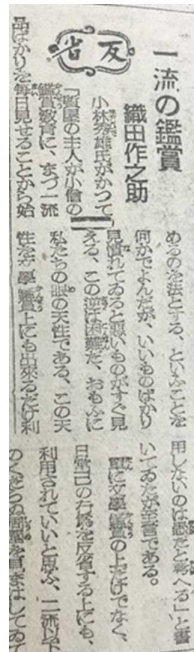 反省
一流の鑑賞
織田作之助
小林秀雄氏がかつて
「質屋の主人が小僧の
鑑賞教育に、まづ一流
品ばかりを毎日見せることから始
めるのを法とする、といふことを
何かでよんだが、いいものばかり
見慣れてゐると悪いものがすぐ見
える、この逆は困難だ、おもふに
私たちの眼の天性である、この天
性を文學鑑賞上にも出来るだけ利
用したいのは感官と考へる」と書
いてゐたが至言である。
文學鑑賞の上だけでなく、
日常己の行為を反省する上にも、
利用されていいと思ふ、二流以下